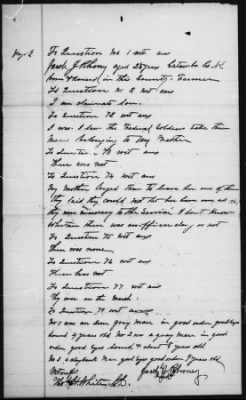 Page 2
To Question No 1 wit ans
Jacob J. Rhoney aged 28 years Catawba Co N.C.
Born & raised in this County. Farmer
To Question No 2 wit ans
I am claimants son.
To Question 72 wit ans
I was. I saw the Federal Soldiers take three
Mares Belonging to My Mother
To Question 73 wit ans
There was not
To Question 74 wit ans
My Mother begged them to leave her one of them
They said they could not let her have even one
they were necessary to the Service. I don't know
Whether there was an officer along or not
To Question 75 wit ans
There was none
To Question 76 wit ans
There was not
To Question 77 wit ans
They were on the march
To Question 79 wit ans
No 1 was an iron gray mare in good order good eyes
sound 4 years old No 2 was a gray mare in good
order, good eyes sound & about 8 years old
No 3 a black mare good eyes good order 9 years old
Witness
Jacob J. Rhoney